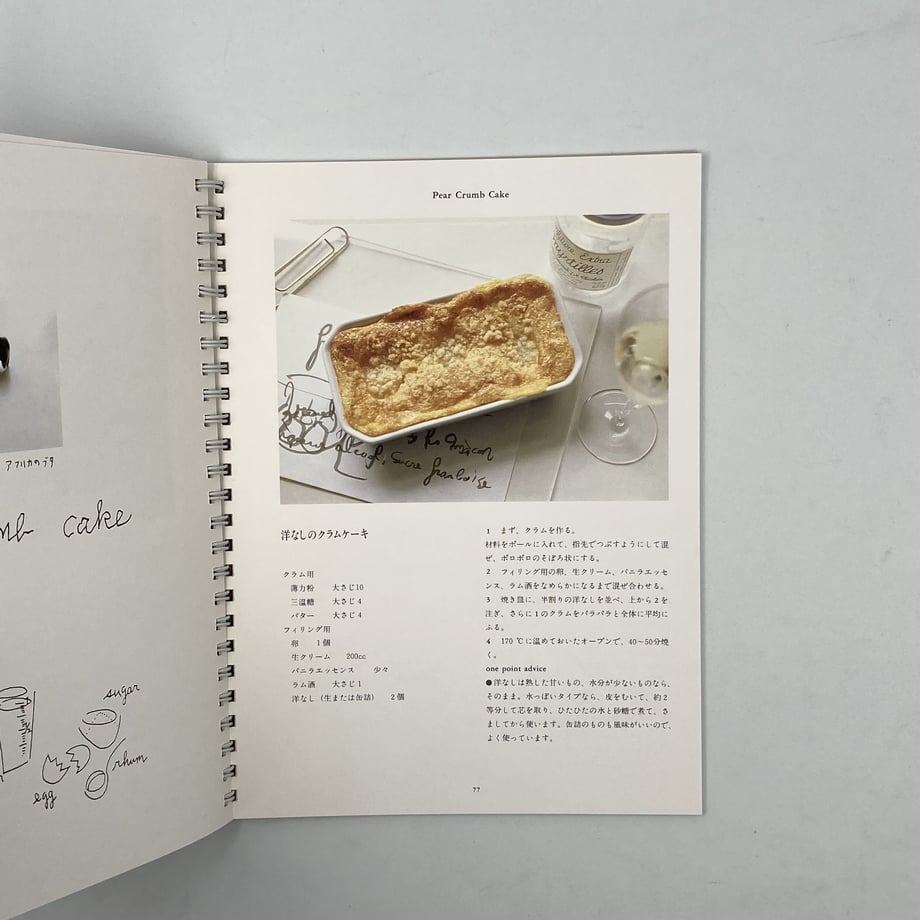 アフリカのブタ
cake
sugar
rhum
egg
Pear Crumb Cake
Extra
洋なしのクラムケーキ
クラム用
薄力粉 大さじ10
三温糖 大さじ4
バター 大さじ4
フィリング用
卵 1個
生クリーム 200cc
バニラエッセンス 少々
ラム酒 大さじ1
洋なし(生または缶詰) 2個
1 まず、クラムを作る。
材料をボールに入れて、指先でつぶすようにして混
ぜ、ボロボロのそぼろ状にする。
2 フィリング用の卵、生クリーム、バニラエッセ
ンス、ラム酒をなめらかになるまで混ぜ合わせる。
3 焼き皿に、半割りの洋なしを並べ、上から2を
注ぎ、さらに1のクラムをパラパラと全体に平均に
ふる。
4 170℃に温めておいたオーブンで、40〜50分焼
く。
one point advice
●洋なしは熟した甘いもの、水分が少ないものなら、
そのまま。水っぽいタイプなら、皮をむいて、約2
等分して芯を取り、ひたひたの水と砂糖で煮て、さ
ましてから使います。缶詰のものも風味がいいので、
よく使っています。
77